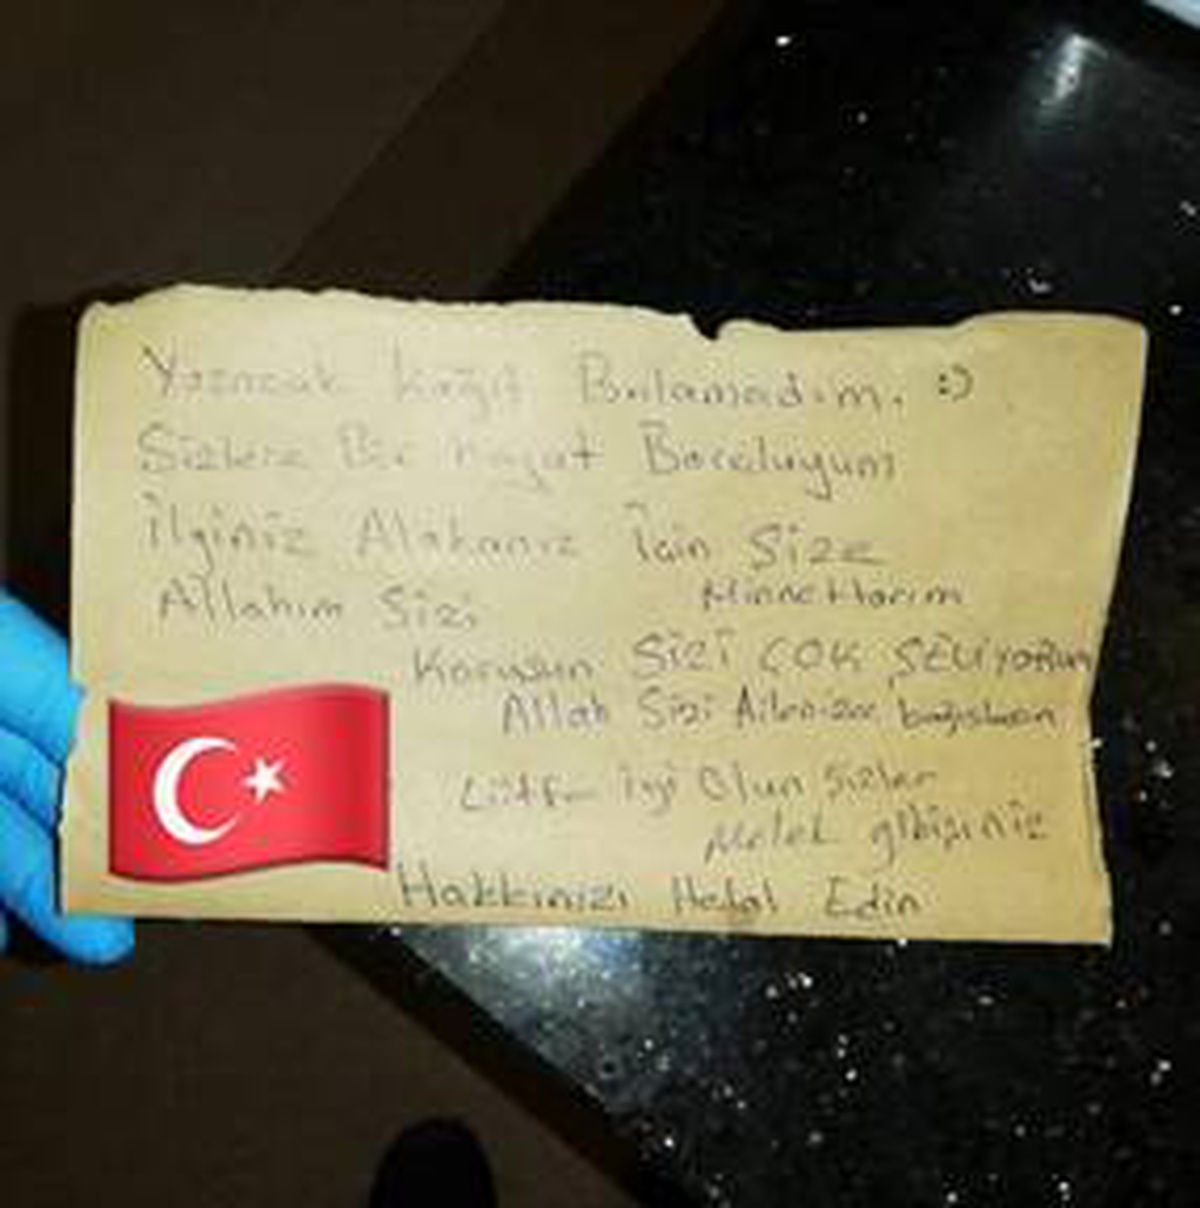 Yazacak kağıt Bulamadım. :)
Sizlere Bir hayat Borcluyum
İlginiz Alakanız İcin Size
Minnettarım
Allahım Sizi
Korusun SİZİ ÇOK SEViYORUM
Allah Sizi Ailenize bağışlasın
Lütfen iyi Olun Sizler
Melek gibisiniz
Hakkınızı Helal Edin